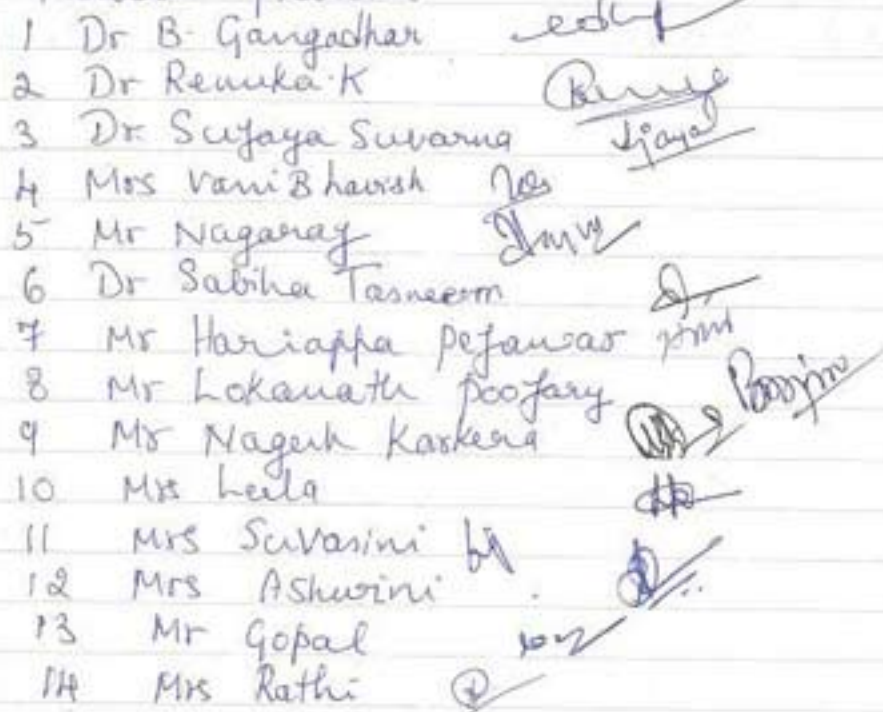 1 Dr B. Gangadhar
2 Dr Renuka.K
3 Dr. Sujaya Suvarna
4 Mrs Vani Bhavish
5 Mr Nagaraj
6 Dr Sabiha Tasneem
7 Mr Hariappa Pejawar
8 Mr Lokanath Poojary
9 Mr Nagesh Karkera
10 Mrs Leela
11 Mrs Suvasini
12 Mrs Ashwini
13 Mr Gopal
14 Mrs Rathi